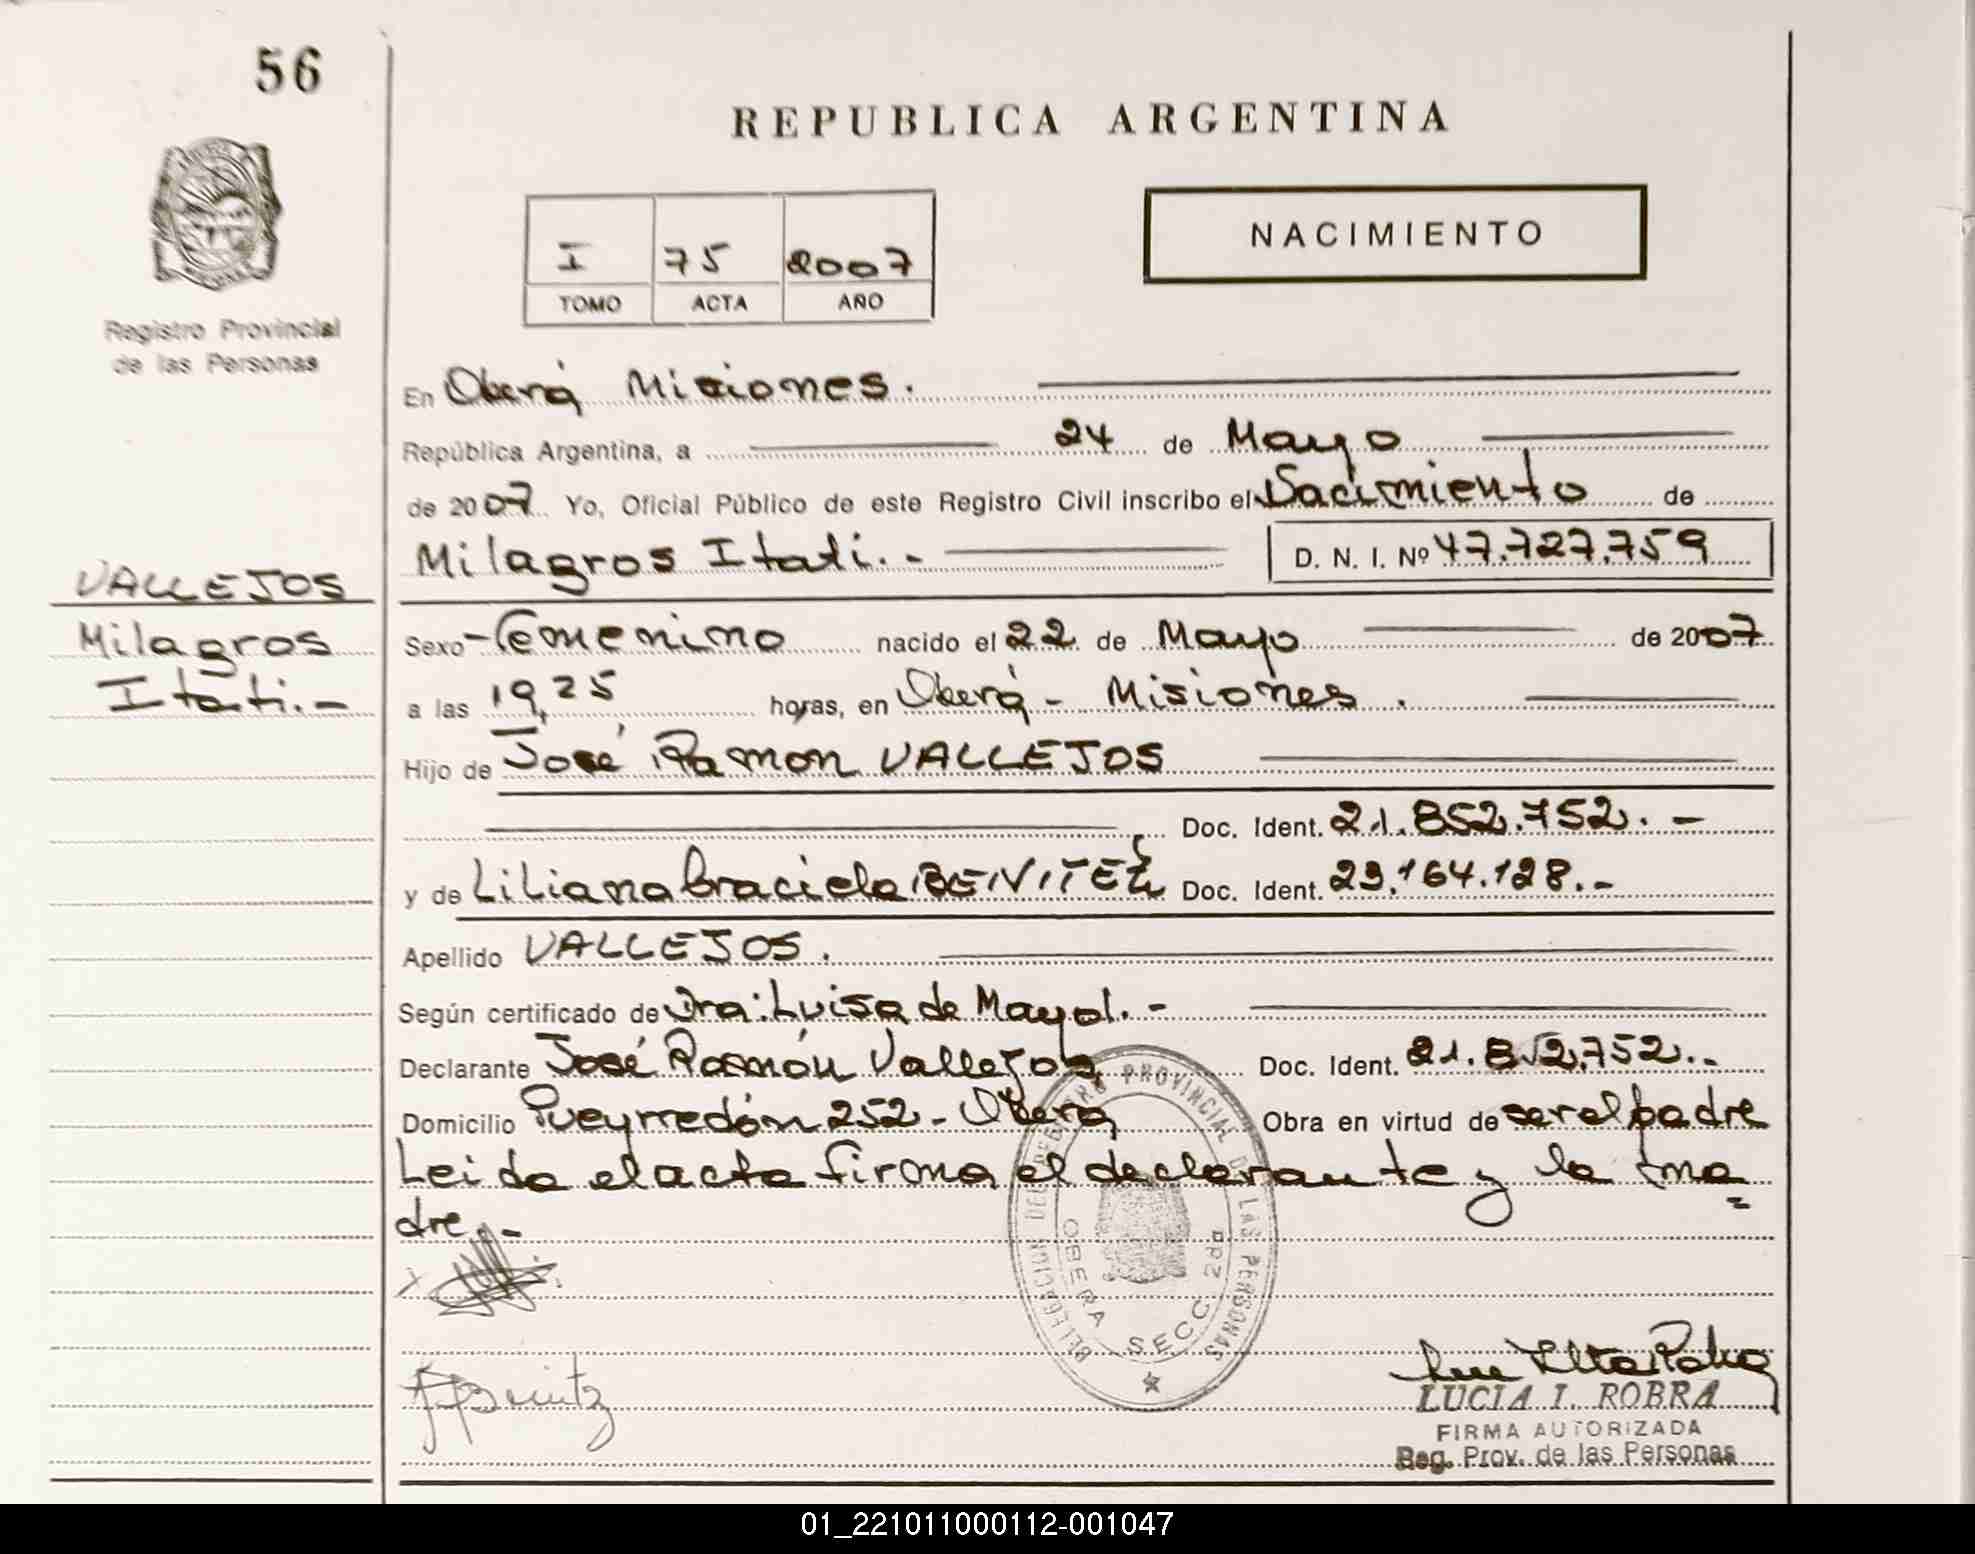 56
REPUBLICA ARGENTINA
NACIMIENTO
I 75 2007
TOMO ACTA AÑO
Registro Provincial
de las Personas
En Oberá Misiones.
República Argentina, a 24 de Mayo
de 2007 Yo, Oficial Público de este Registro Civil inscribo el Nacimiento de
Milagros Itati.- D. N. I. Nº 47.727.759
VALLEJOS
Milagros
Itati.-
Sexo Femenino nacido el 22 de Mayo de 2007
a las 19,25 horas, en Oberá - Misiones.
Hijo de José Ramon VALLEJOS
Doc. Ident. 21.852.752.-
y de Liliana Graciela BENITEZ Doc. Ident. 23.164.128.-
Apellido VALLEJOS.
Según certificado de Dra: Luisa de Mayol.-
Declarante José Ramón Vallejos Doc. Ident. 21.852.752..-
Domicilio Pueyrredón 252 - Oberá Obra en virtud de ser el padre
Leida el acta firma el declarante y la ma
dre.-
DELEGACION DEL REGISTRO PROVINCIAL DE LAS PERSONAS
OBERA SECC. 2da
LUCIA I. ROBRA
FIRMA AUTORIZADA
Reg. Prov. de las Personas
01_221011000112-001047